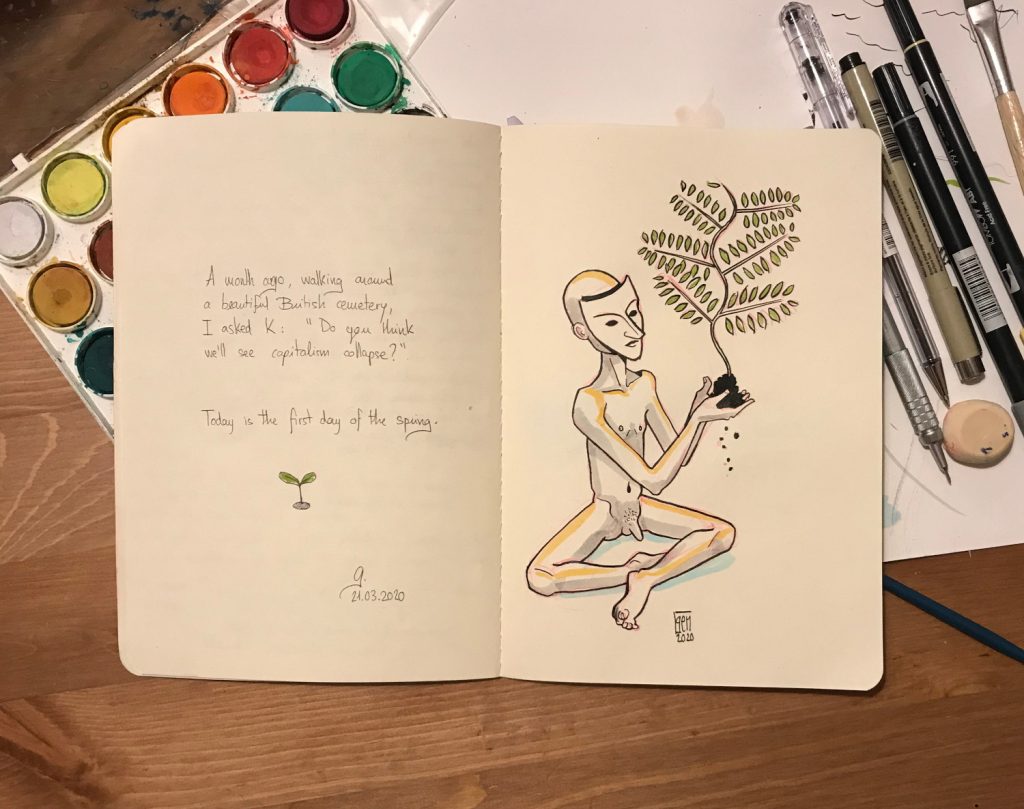 A month ago, walking around
a beautiful British cemetery,
I asked K: "Do you think
we'll see capitalism collapse?".
Today is the first day of the spring.
g.
21.03.2020
gen
2020